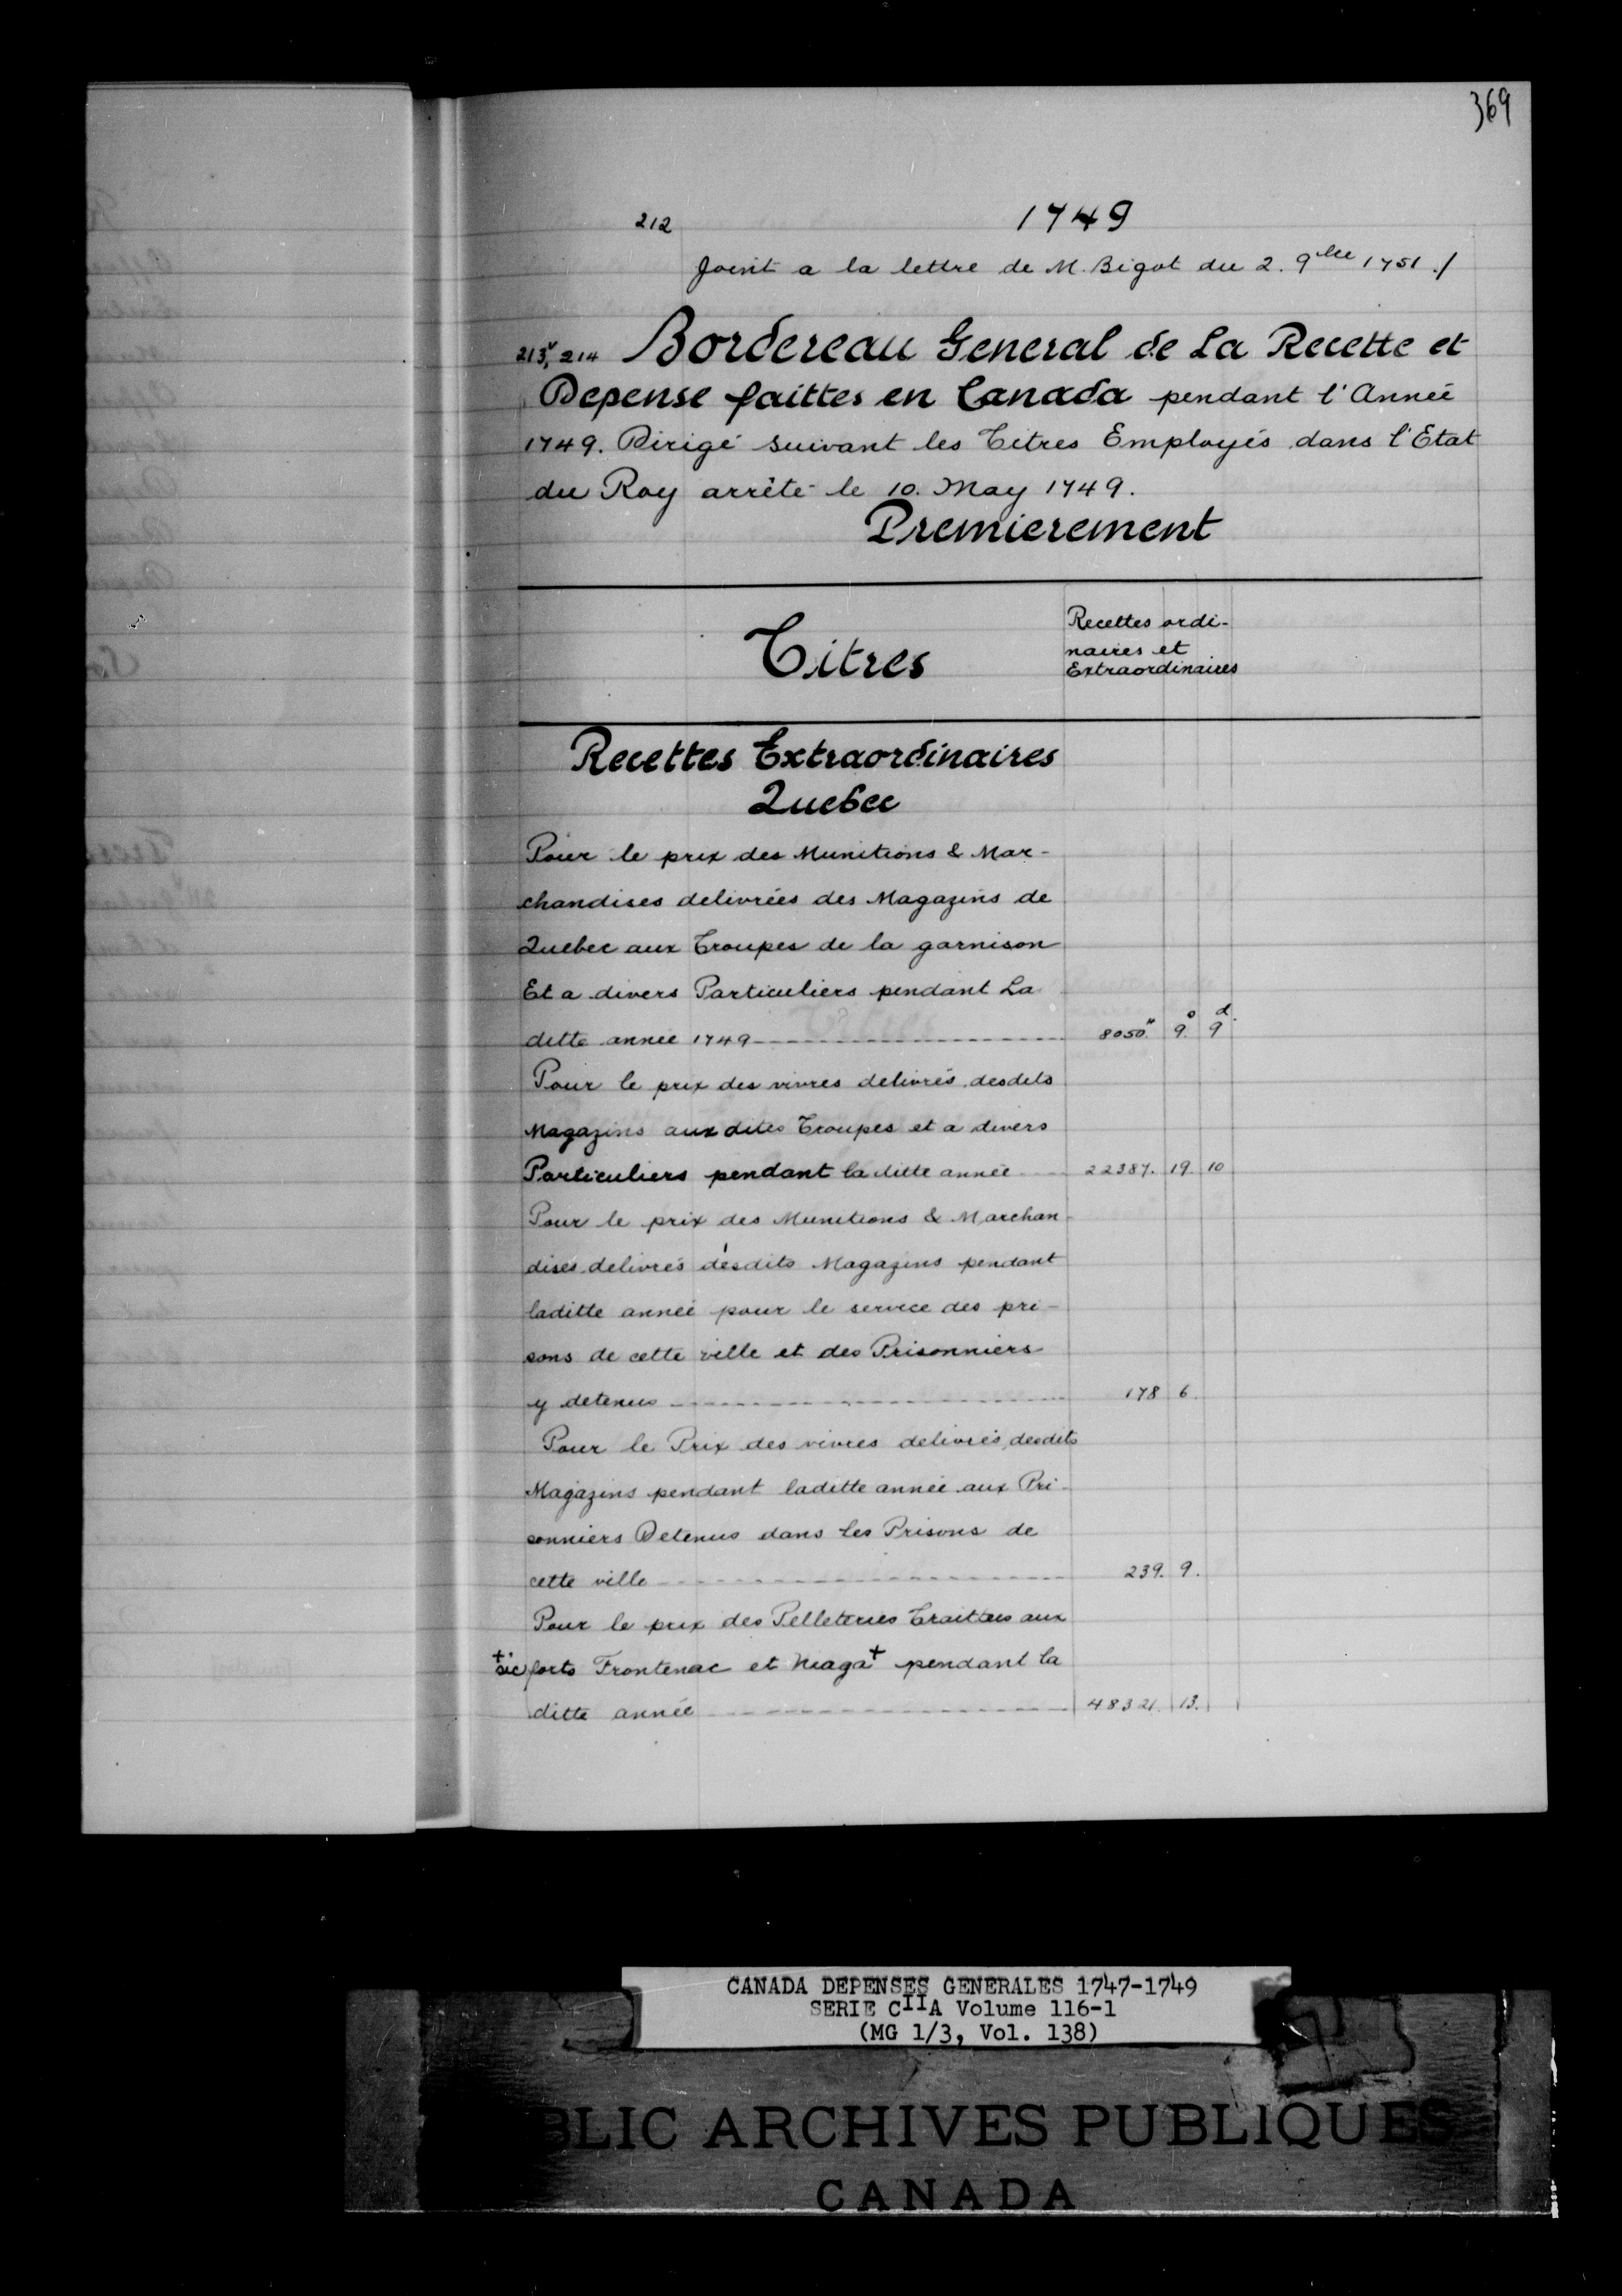 369
212 1749
Joint a la lettre de M. Bigot du 2. 9bre 1751 ./
213v, 214 Bordereau General de La Recette et
Depense faittes en Canada pendant l'Année
1749. Dirigé suivant les Titres Employés dans l'Etat
du Roy arrêté le 10. May 1749.
Premierement
Titres
Recettes ordi-
naires et
Extraordinaires
Recettes Extraordinaires
Quebec
Pour le prix des Munitions & Mar-
chandises delivrées des Magazins de
Quebec aux Troupes de la garnison
Et a divers Particuliers pendant La
ditte année 1749 8050.# 9.s 9d.
Pour le prix des vivres delivrés desdits
Magazins aux dites Troupes et a divers
Particuliers pendant la ditte année 22387. 19. 10
Pour le prix des Munitions & Marchan-
dises delivrés desdits Magazins pendant
laditte année pour le service des pri-
sons de cette ville et des Prisonniers
y detenus 178 6.
Pour le Prix des vivres delivrés desdits
Magazins pendant laditte année aux Pri-
sonniers Detenus dans les Prisons de
cette ville 239. 9.
Pour le prix des Pelleteries Traittées aux
+sic forts Frontenac et Niaga+ pendant la
ditte année 48321. 13.
CANADA DEPENSES GENERALES 1747-1749
SERIE CIIA Volume 116-1
(MG 1/3, Vol. 138)
BLIC ARCHIVES PUBLIQUES
CANADA